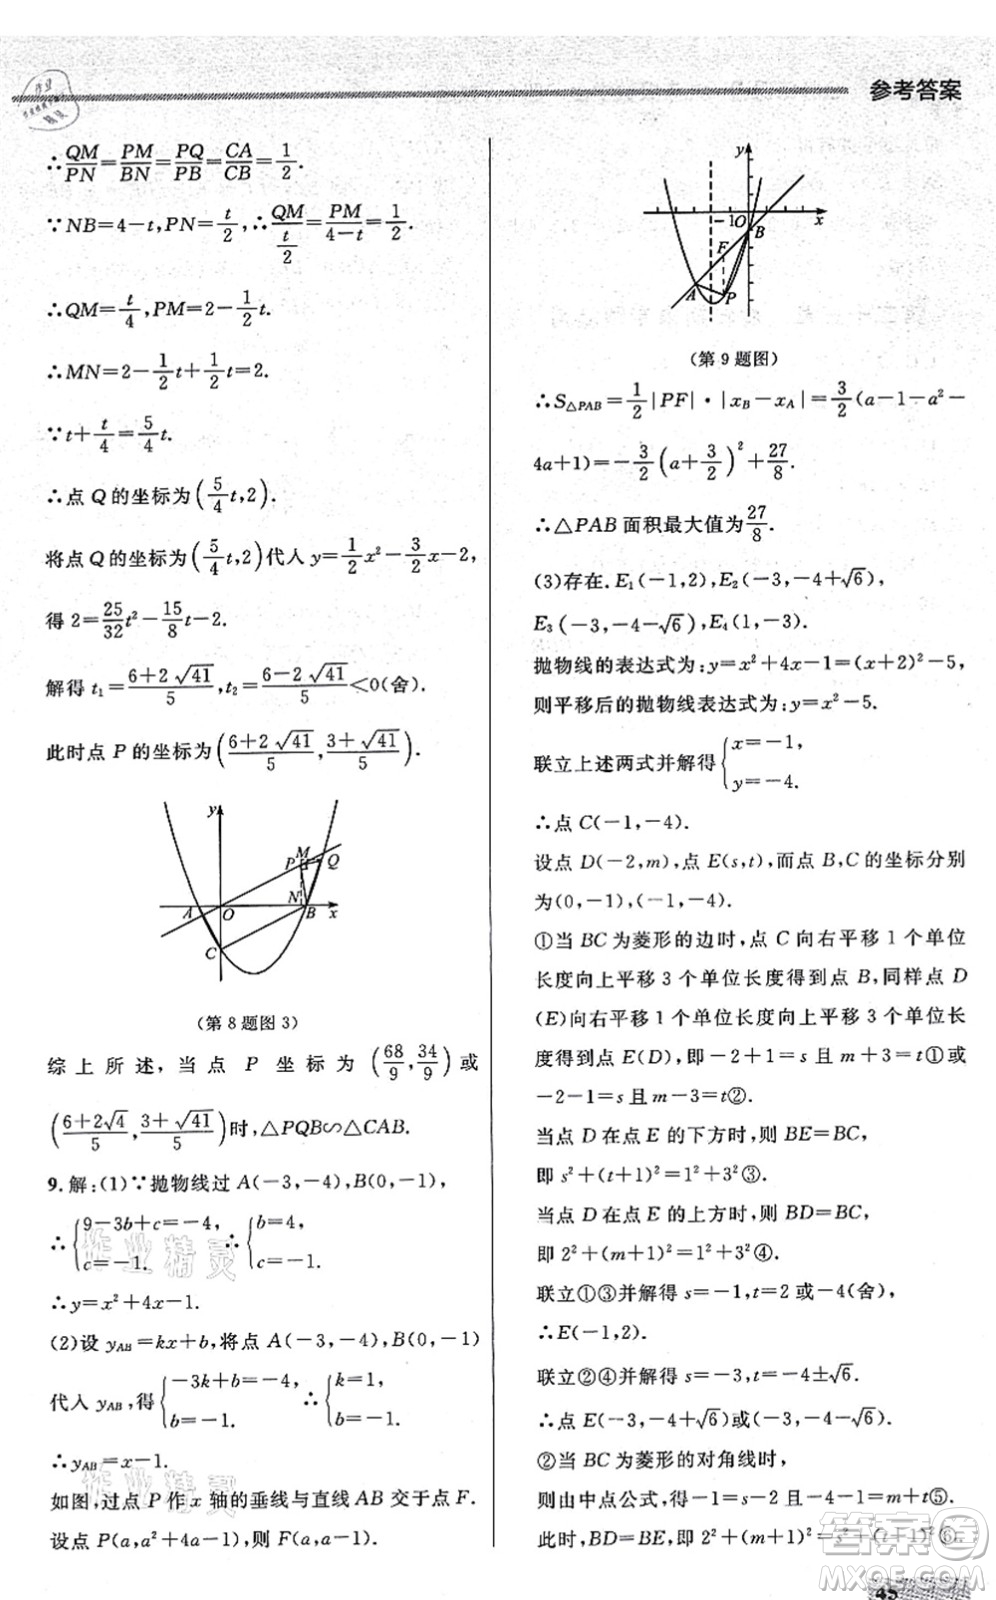 参考答案
∴QM/PN=PM/BN=PQ/PB=CA/CB=1/2.
∵NB=4-t,PN=t/2,∴QM/(t/2)=PM/(4-t)=1/2.
∴QM=t/4,PM=2-1/2t.
∴MN=2-1/2t+1/2t=2.
∵t+t/4=5/4t.
∴点Q的坐标为(5/4t,2).
将点Q的坐标为(5/4t,2)代入y=1/2x²-3/2x-2,
得2=25/32t²-15/8t-2.
解得t₁=(6+2√41)/5,t₂=(6-2√41)/5<0(舍).
此时点P的坐标为((6+2√41)/5,(3+√41)/5).
y
M
P Q
N
A O B x
C
(第8题图3)
综上所述,当点P坐标为(68/9,34/9)或
((6+2√4)/5,(3+√41)/5)时,△PQB∽△CAB.
9.解:(1)∵抛物线过A(-3,-4),B(0,-1),
∴{9-3b+c=-4, c=-1. ∴{b=4, c=-1.
∴y=x²+4x-1.
(2)设yAB=kx+b,将点A(-3,-4),B(0,-1)
代入yAB,得{-3k+b=-4, b=-1. ∴{k=1, b=-1.
∴yAB=x-1.
如图,过点P作x轴的垂线与直线AB交于点F.
设点P(a,a²+4a-1),则F(a,a-1).
y
-1 O x
B
F
A P
(第9题图)
∴S△PAB=1/2|PF|·|xB-xA|=3/2(a-1-a²-
4a+1)=-3/2(a+3/2)²+27/8.
∴△PAB面积最大值为27/8.
(3)存在.E₁(-1,2),E₂(-3,-4+√6),
E₃(-3,-4-√6),E₄(1,-3).
抛物线的表达式为:y=x²+4x-1=(x+2)²-5,
则平移后的抛物线表达式为:y=x²-5.
联立上述两式并解得{x=-1, y=-4.
∴点C(-1,-4).
设点D(-2,m),点E(s,t),而点B,C的坐标分别
为(0,-1),(-1,-4).
①当BC为菱形的边时,点C向右平移1个单位
长度向上平移3个单位长度得到点B,同样点D
(E)向右平移1个单位长度向上平移3个单位
长度得到点E(D),即-2+1=s且m+3=t①或
-2-1=s且m-3=t②.
当点D在点E的下方时,则BE=BC,
即s²+(t+1)²=1²+3²③.
当点D在点E的上方时,则BD=BC,
即2²+(m+1)²=1²+3²④.
联立①③并解得s=-1,t=2或-4(舍),
∴E(-1,2).
联立②④并解得s=-3,t=-4±√6.
∴点E(-3,-4+√6)或(-3,-4-√6).
②当BC为菱形的对角线时,
则由中点公式得-1=s-2,-5=m+t⑤.
此时,BD=BE,即2²+(m+1)²=s²+(t+1)²⑥.
45
答案圈
MXQE.COM
作业精灵
作业精灵